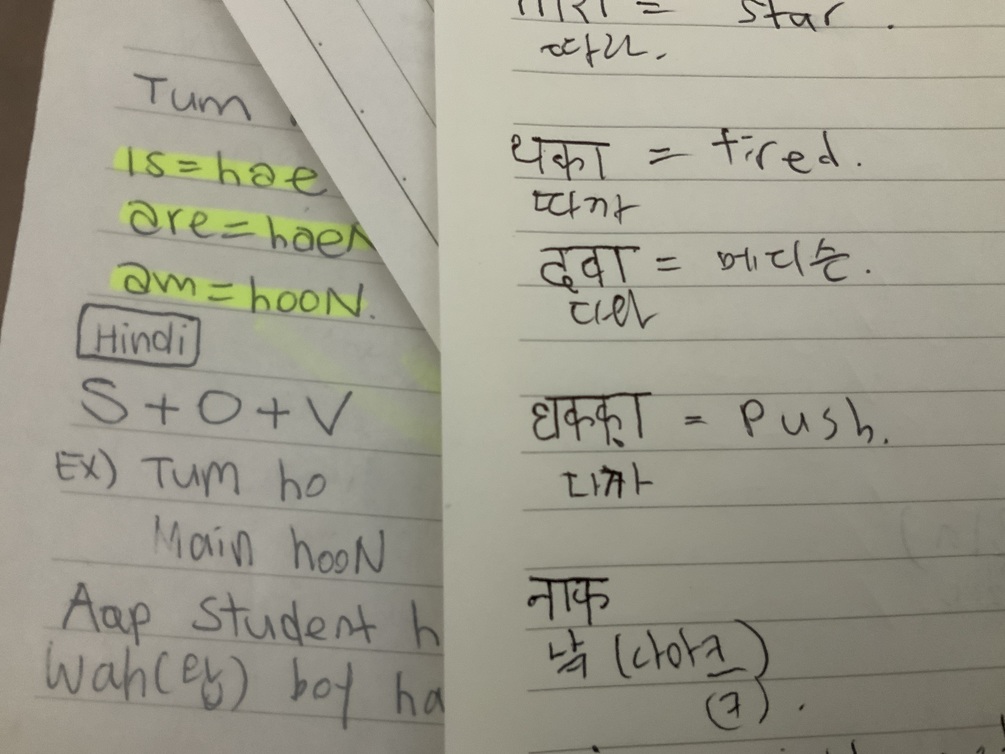 Tum
is=hae
are=haeN
am=hooN.
Hindi
S+O+V
EX) Tum ho
Main hooN
Aap Student h
Wah(엏) boy ha
तारा = star.
따라.
थका = tired.
따까
दवा = 메디슨.
다와
धक्का = Push.
다까
नाक
(나아ㅋ)
(ㅋ).